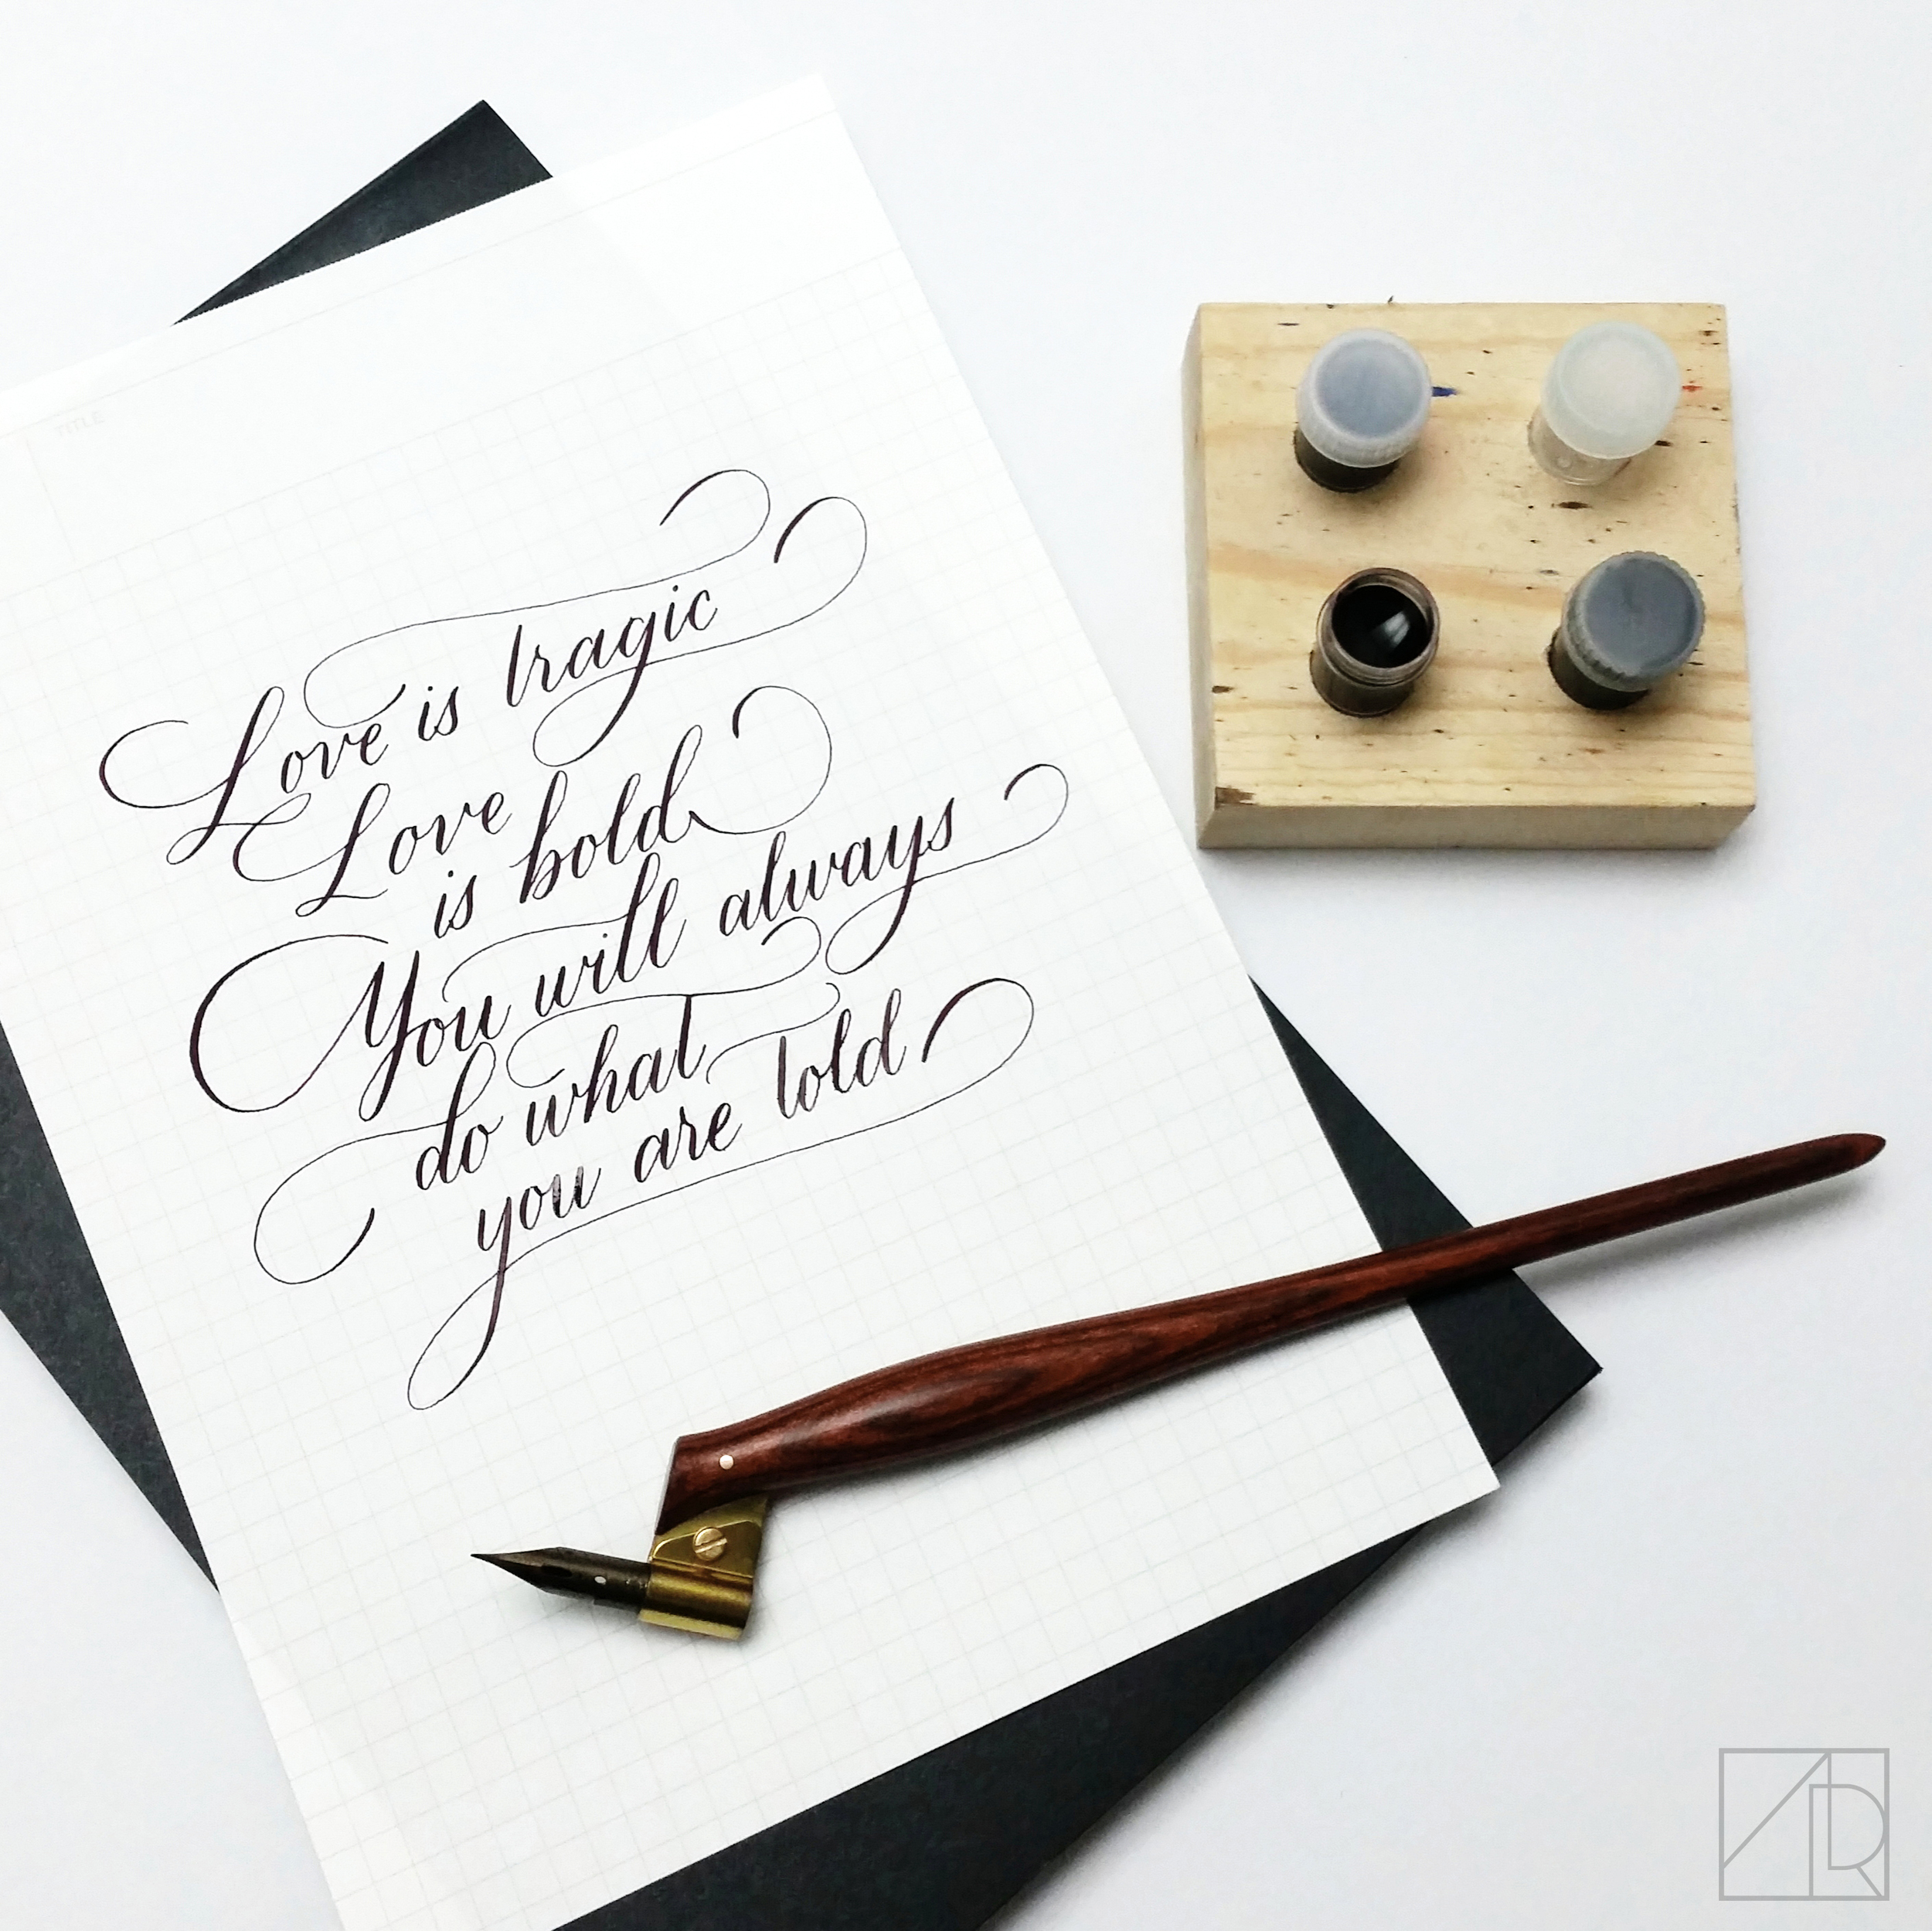 TITLE
Love is tragic
Love
is bold
You will always
do what
you are told
AR